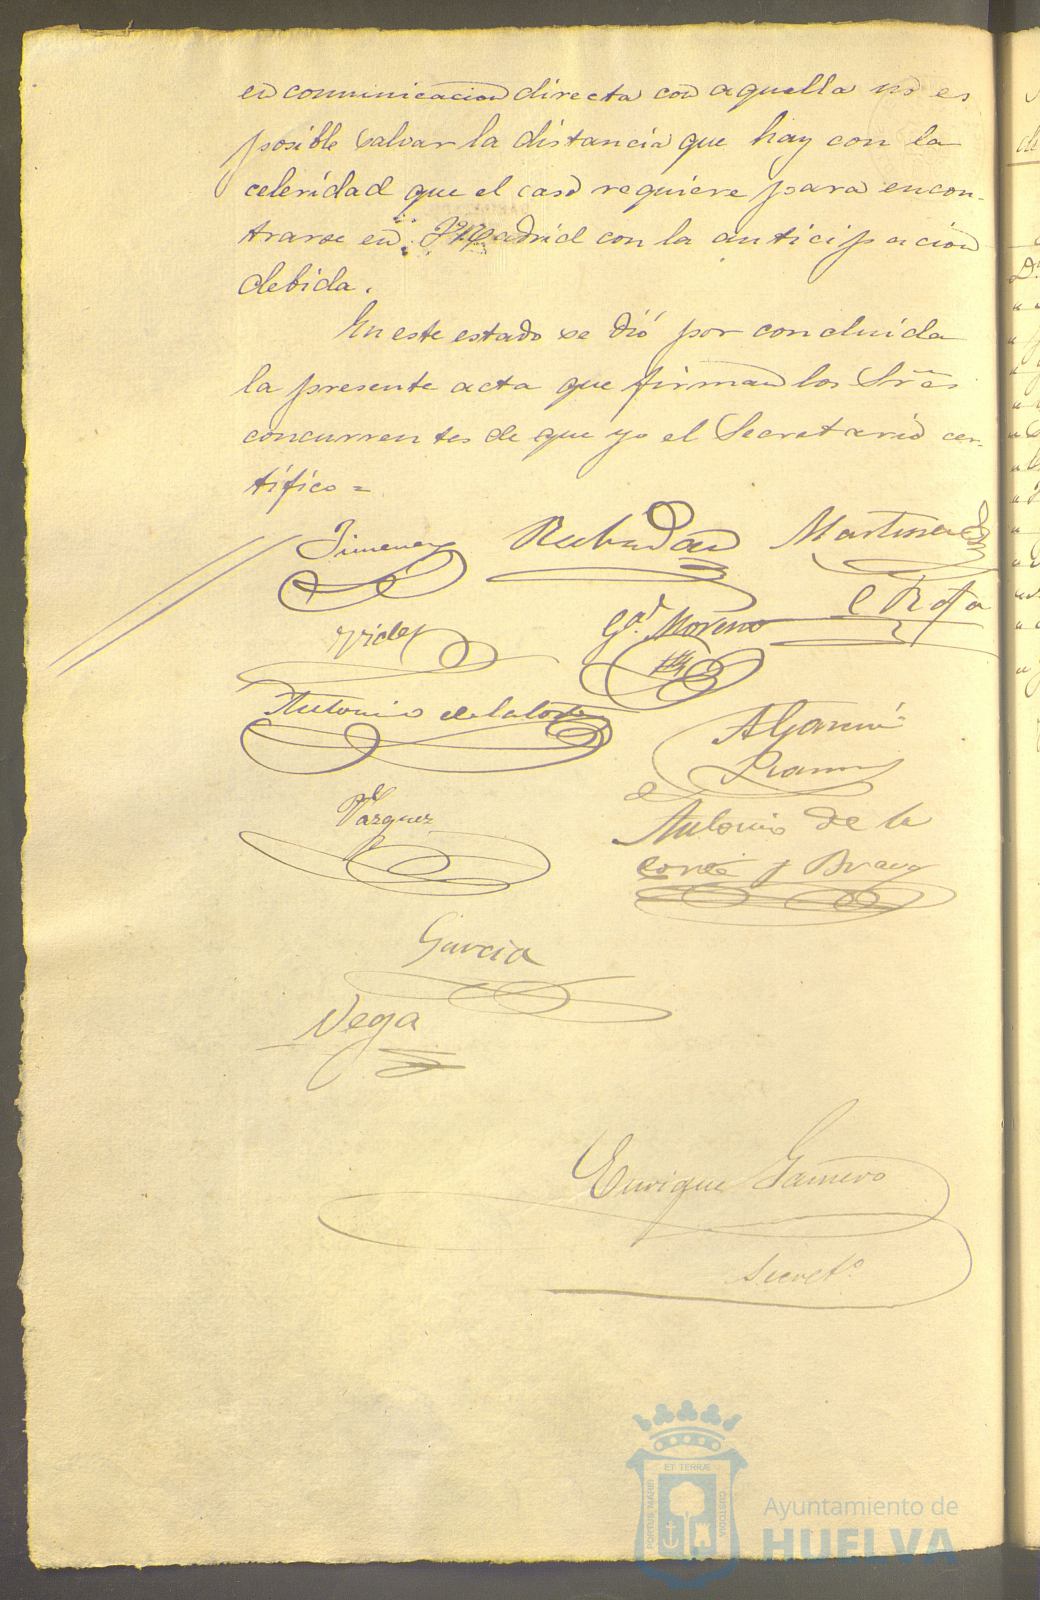 en comunicacion directa con aquella no es
posible salvar la distancia que hay con la
celeridad que el caso requiere para encon-
trarse en Madrid con la anticipacion
debida.
En este estado se dió por concluida
la presente acta que firman los Sres
concurrentes de que yo el Secretario cer-
tifico =
Jimenez Martinez
Gª Moreno
Antonio de la Corte
A García
Vazquez
Antonio de la
Corte y Bravo
Garcia
Vega
Enrique Gamero
Secretº
ET TERRÆ
PORTUS MARIS
CUSTODIA
Ayuntamiento de
HUELVA